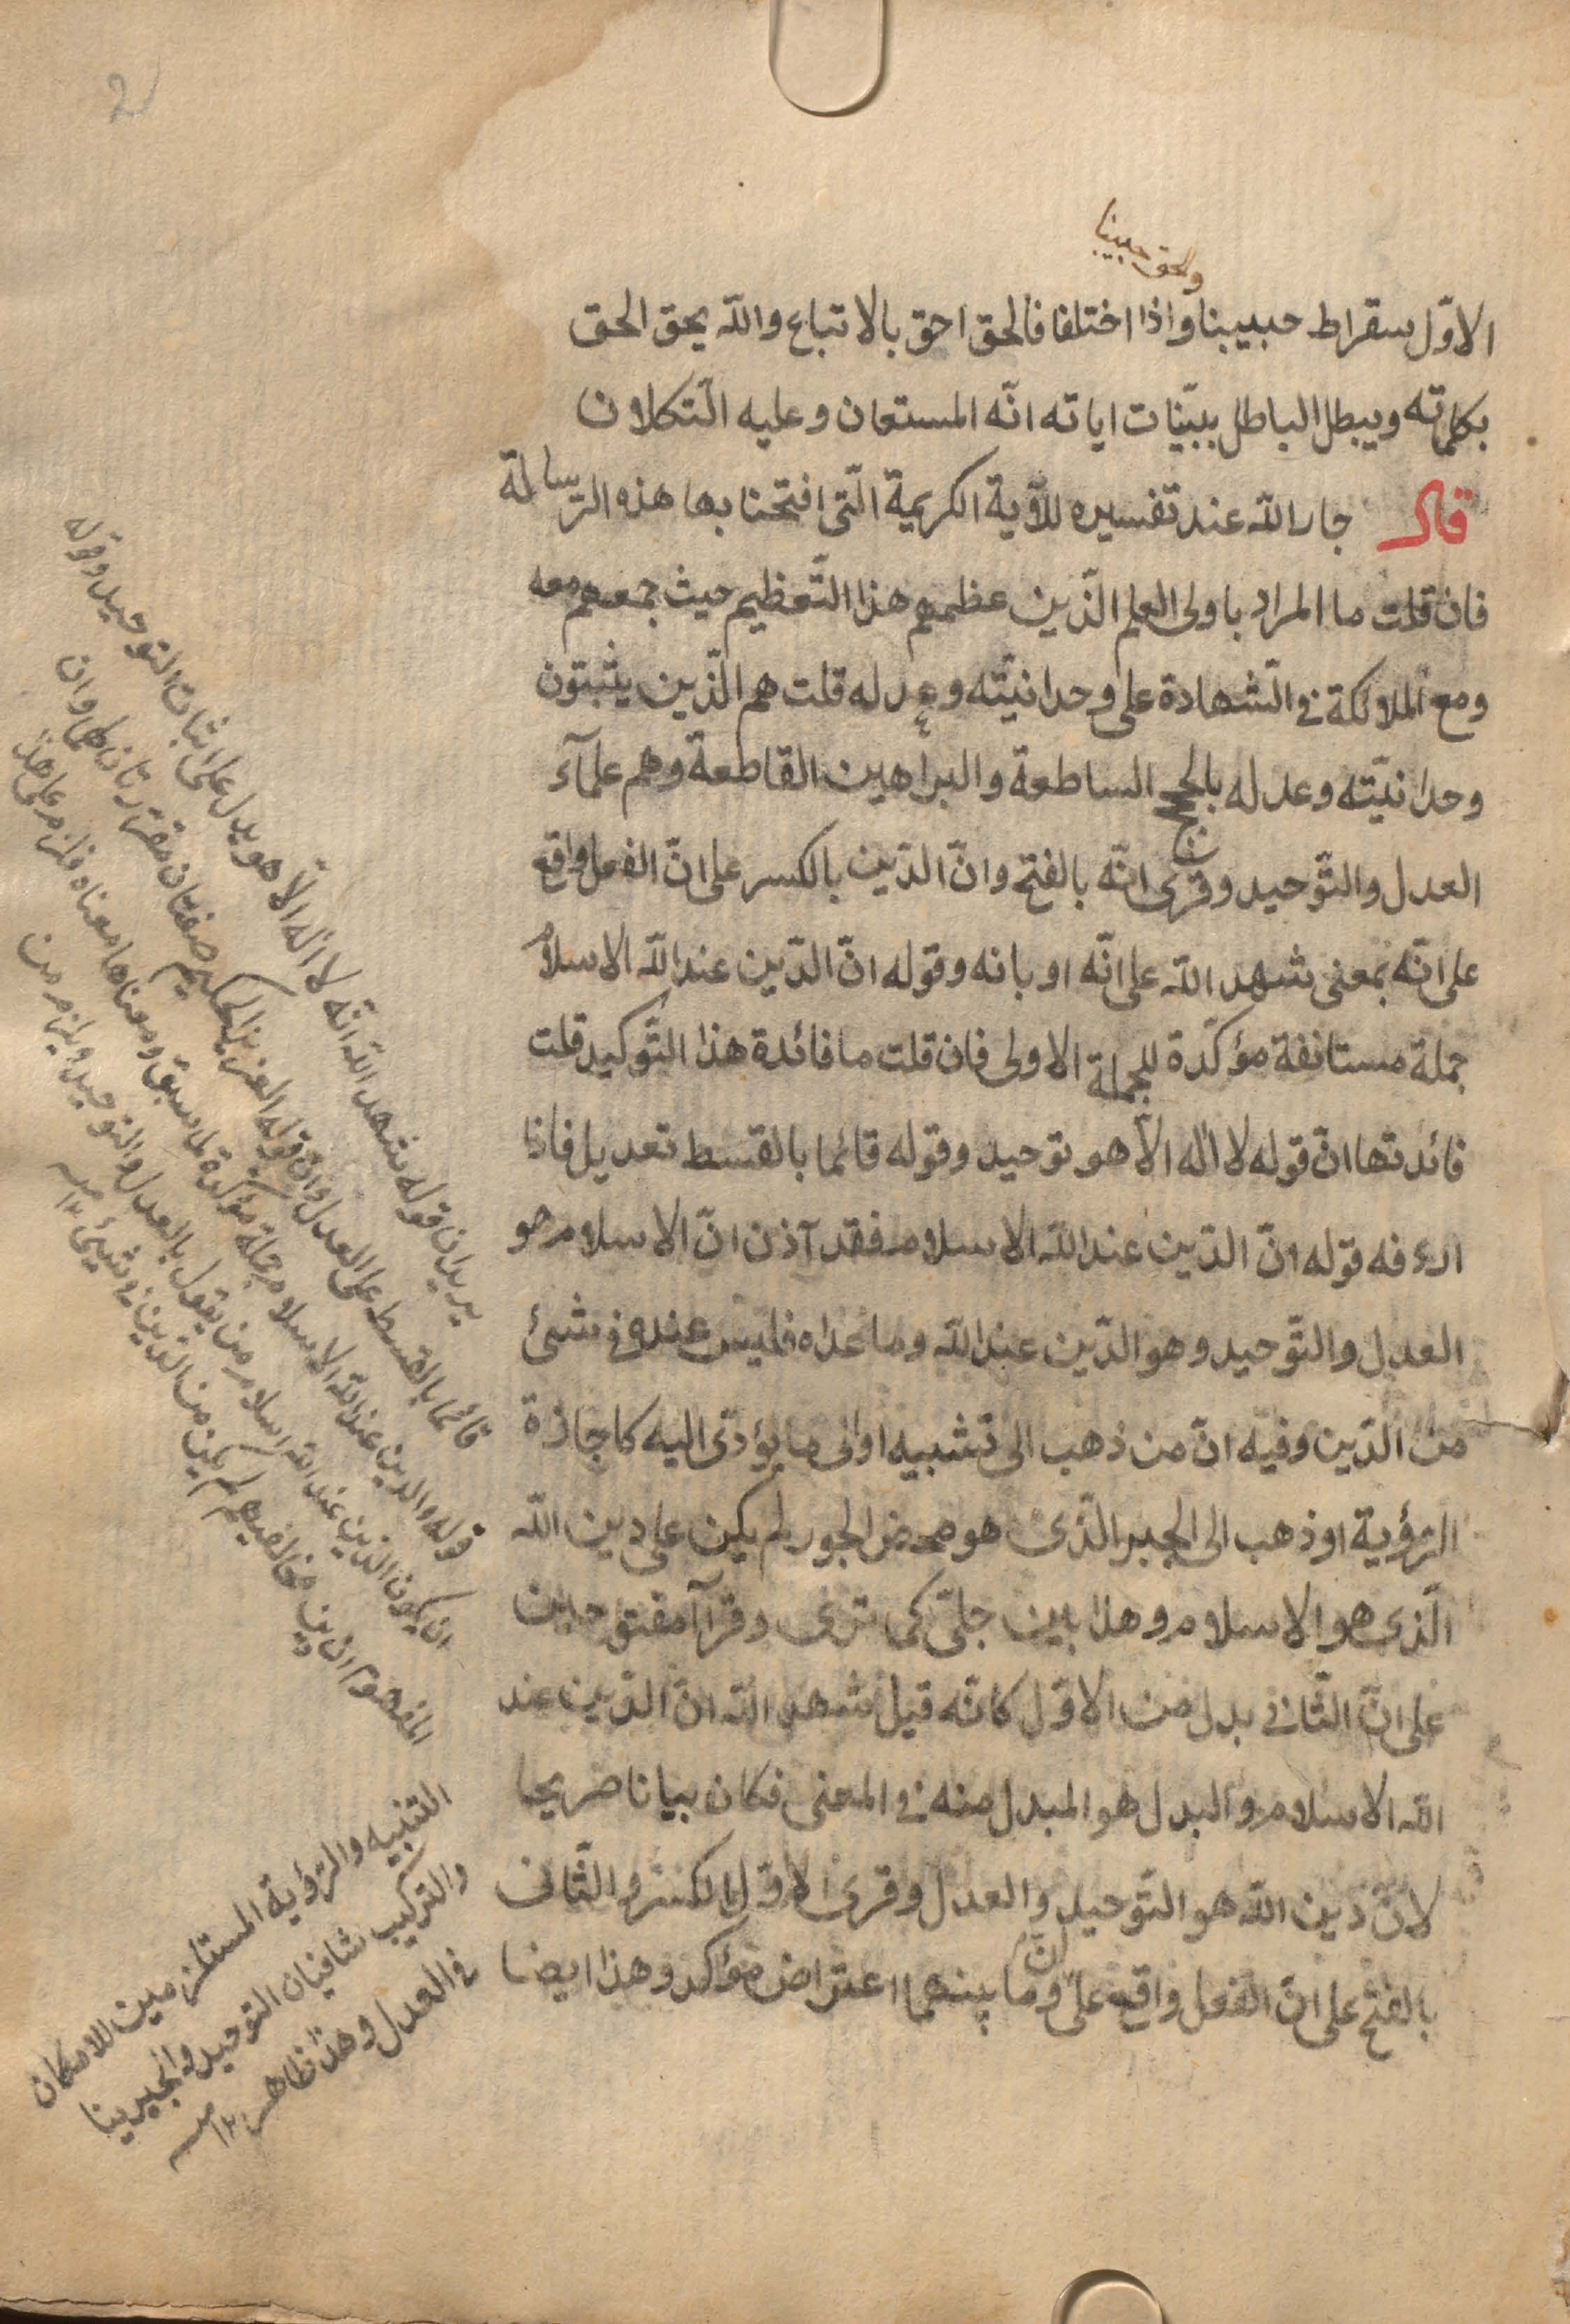 والحق حبيبنا
الاوّل سقراط حبيبنا واذا اختلفا فالحق احق بالاتباع والله يحق الحق
بكلماته ويبطل الباطل ببيّنات اياته انّه المستعان وعليه التكلان
قال جار الله عند تفسيره للآية الكريمة الّتى افتحنا بها هذه الرّسالة
فان قلت ما المراد باولى العلم الّذين عظمهم هذا التّعظيم حيث جمعهم معه
ومع الملائكة فى الشّهادة على وحدانيّته وعدله قلت هم الّذين يثبتون
وحدانيّته وعدله بالحجج الساطعة والبراهين القاطعة وهم علمآء
العدل والتّوحيد وقرئ انّه بالفتح وانّ الدّين بالكسر على انّ الفعل واقع
على انّه بمعنى شهد الله على انّه او بانه وقوله انّ الدّين عند الله الاسلام
جملة مستانفة مؤكّدة للجملة الاولى فان قلت ما فائدة هذا التّوكيد قلت
فائدتها انّ قوله لا اله الّا هو توحيد وقوله قائما بالقسط تعديل فاذا
اردفه قوله انّ الدّين عند الله الاسلام فقد آذن انّ الاسلام هو
العدل والتّوحيد وهو الدّين عند الله وما عداه فليس عنده فى شئ
من الدّين وفيه انّ من ذهب الى تشبيه او الى ما يؤدّى اليه كاجازة
الرّؤية او ذهب الى الجبر الّذى هو محض الجور لم يكن على دين الله
الّذى هو الاسلام وهذا بين جلىّ كمى ترى وقرآ مفتوحين
على انّ الثّانى بدل من الاوّل كانّه قيل شهد الله انّ الدّين عند
الله الاسلام والبدل هو المبدل منه فى المعنى فكان بيانا صريحا
لانّ دين الله هو التّوحيد والعدل وقرئ الاوّل بالكسر والثّانى
بالفتح على انّ الفعل واقع على انّ وما بينهما اعتراض مؤكد وهذا ايضا
يريد ان قوله شهد الله انّه لا اله الّا هو يدل على اثبات التوحيد وقوله
قائما بالقسط على العدل وان قوله العزيز الحكيم صفتان مقرّرتان لهما وان
قوله والدين عند الله الاسلام جملة مؤكدة لما سبق ومعناها معناه فلزم على هذا
ان يكون الدين عند الله اسلام من يقول بالعدل والتوحيد ويلزم من
المفهوم ان دين مخالفيهم لم يكن من الدّين فى شئ ١٢ منه
التشبيه والرّؤية المستلزمين للامكان
والتركيب ينافيان التوحيد والجبر ينا
فى العدل وهذا ظاهر ١٢ منه